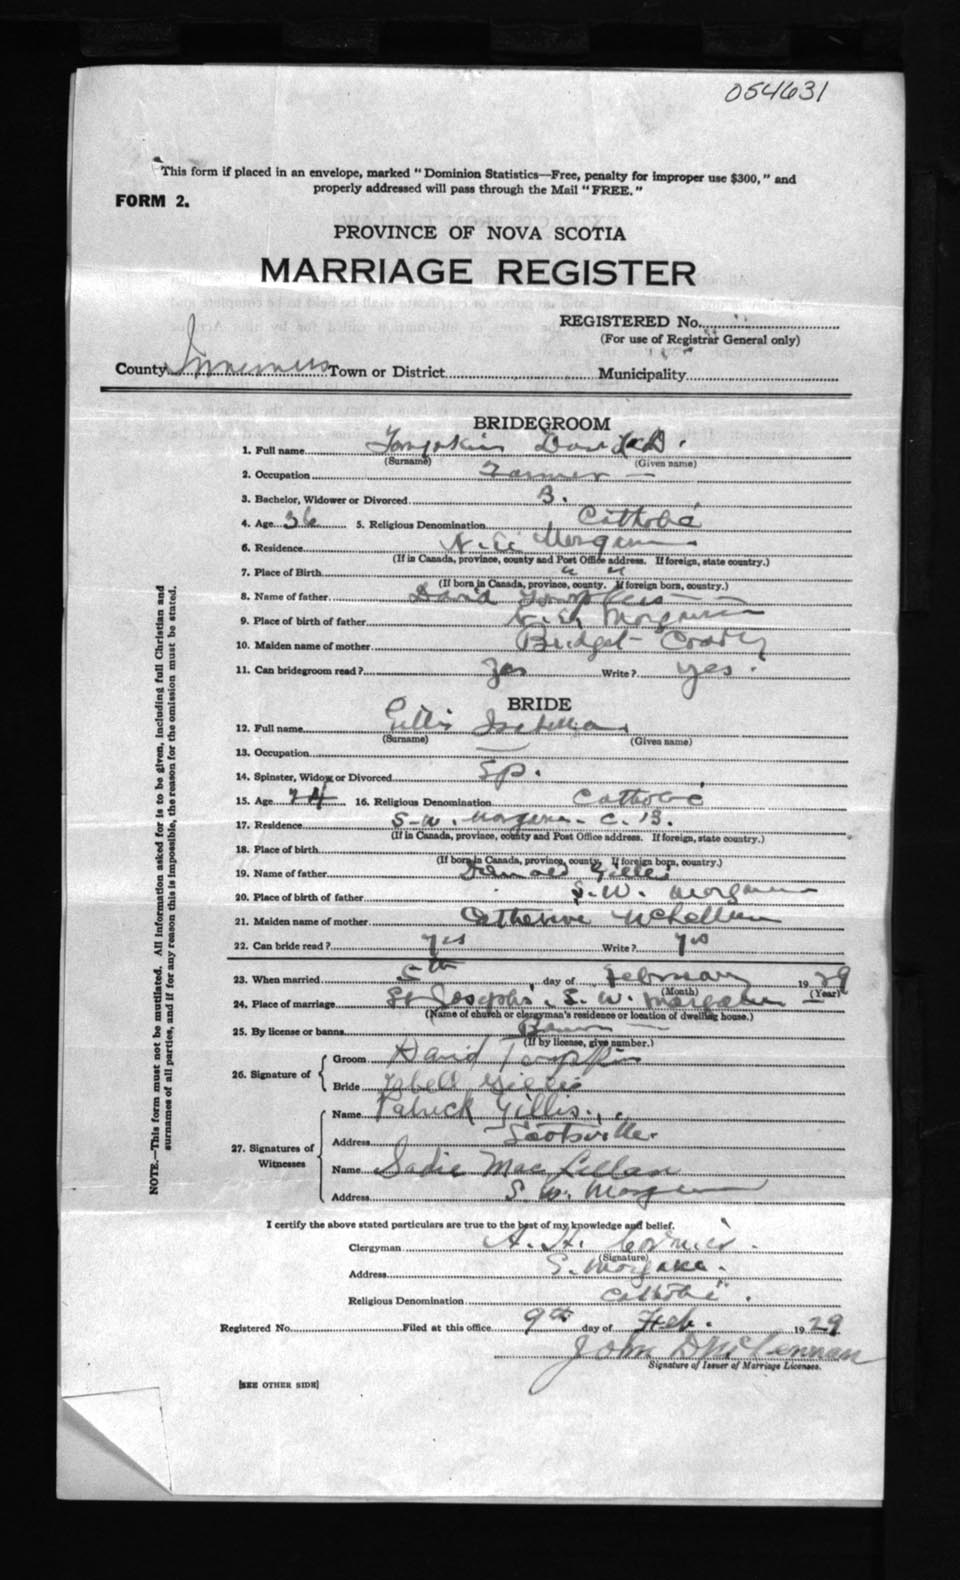 054631
This form if placed in an envelope, marked "Dominion Statistics—Free, penalty for improper use $300," and
properly addressed will pass through the Mail "FREE."
FORM 2.
PROVINCE OF NOVA SCOTIA
MARRIAGE REGISTER
REGISTERED No.
(For use of Registrar General only)
County Inverness Town or District Municipality
BRIDEGROOM
1. Full name Tompkins David
(Surname) (Given name)
2. Occupation Farmer
3. Bachelor, Widower or Divorced B.
4. Age 36 5. Religious Denomination Catholic
6. Residence Margaree
(If in Canada, province, county and Post Office address. If foreign, state country.)
7. Place of Birth " "
(If born in Canada, province, county. If foreign born, country.)
8. Name of father David Tompkins
9. Place of birth of father Margaree
10. Maiden name of mother Bridget Coady
11. Can bridegroom read? Yes Write? yes.
BRIDE
12. Full name Gillis Isabella
(Surname) (Given name)
13. Occupation —
14. Spinster, Widow or Divorced Sp.
15. Age 24 16. Religious Denomination Catholic
17. Residence S-W. Margaree - C. B.
(If in Canada, province, county and Post Office address. If foreign, state country.)
18. Place of birth
(If born in Canada, province, county. If foreign born, country.)
19. Name of father Donald Gillis
20. Place of birth of father S.W. Margaree
21. Maiden name of mother Catherine McLellan
22. Can bride read? yes Write? yes
23. When married 5th day of February 1929
(Month) (Year)
24. Place of marriage St Josephs, S. W. Margaree
(Name of church or clergyman's residence or location of dwelling house.)
25. By license or banns Banns
(If by license, give number.)
26. Signature of
Groom David Tompkins
Bride Isbell Gillis
27. Signatures of Witnesses
Name Patrick Gillis
Address Scotsville
Name Sadie MacLellan
Address S. W. Margaree
I certify the above stated particulars are true to the best of my knowledge and belief.
Clergyman A. H. Cormier
(Signature)
Address S. Margaree
Religious Denomination Catholic
Registered No. Filed at this office 9th day of Feb. 1929
John D McLennan
Signature of Issuer of Marriage Licenses.
[SEE OTHER SIDE]
NOTE.—This form must not be mutilated. All information asked for is to be given, including full Christian and
surnames of all parties, and if for any reason this is impossible, the reason for the omission must be stated.